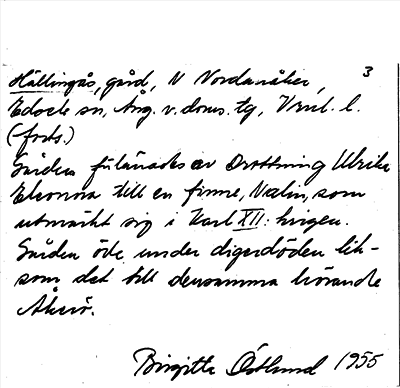 3
Hällingås, gård, N Nordanåker,
Edsele sn, Ång. v. doms. tg, Vnrl. l.
(forts.)
Gården förlänades av Drottning Ulrika
Eleonora till en finne, Nalin, som
utmärkt sig i Karl XII: krigen.
Gården öde under digerdöden lik-
som det till densamma hörande
Åkerö.
Birgitta Östlund 1955